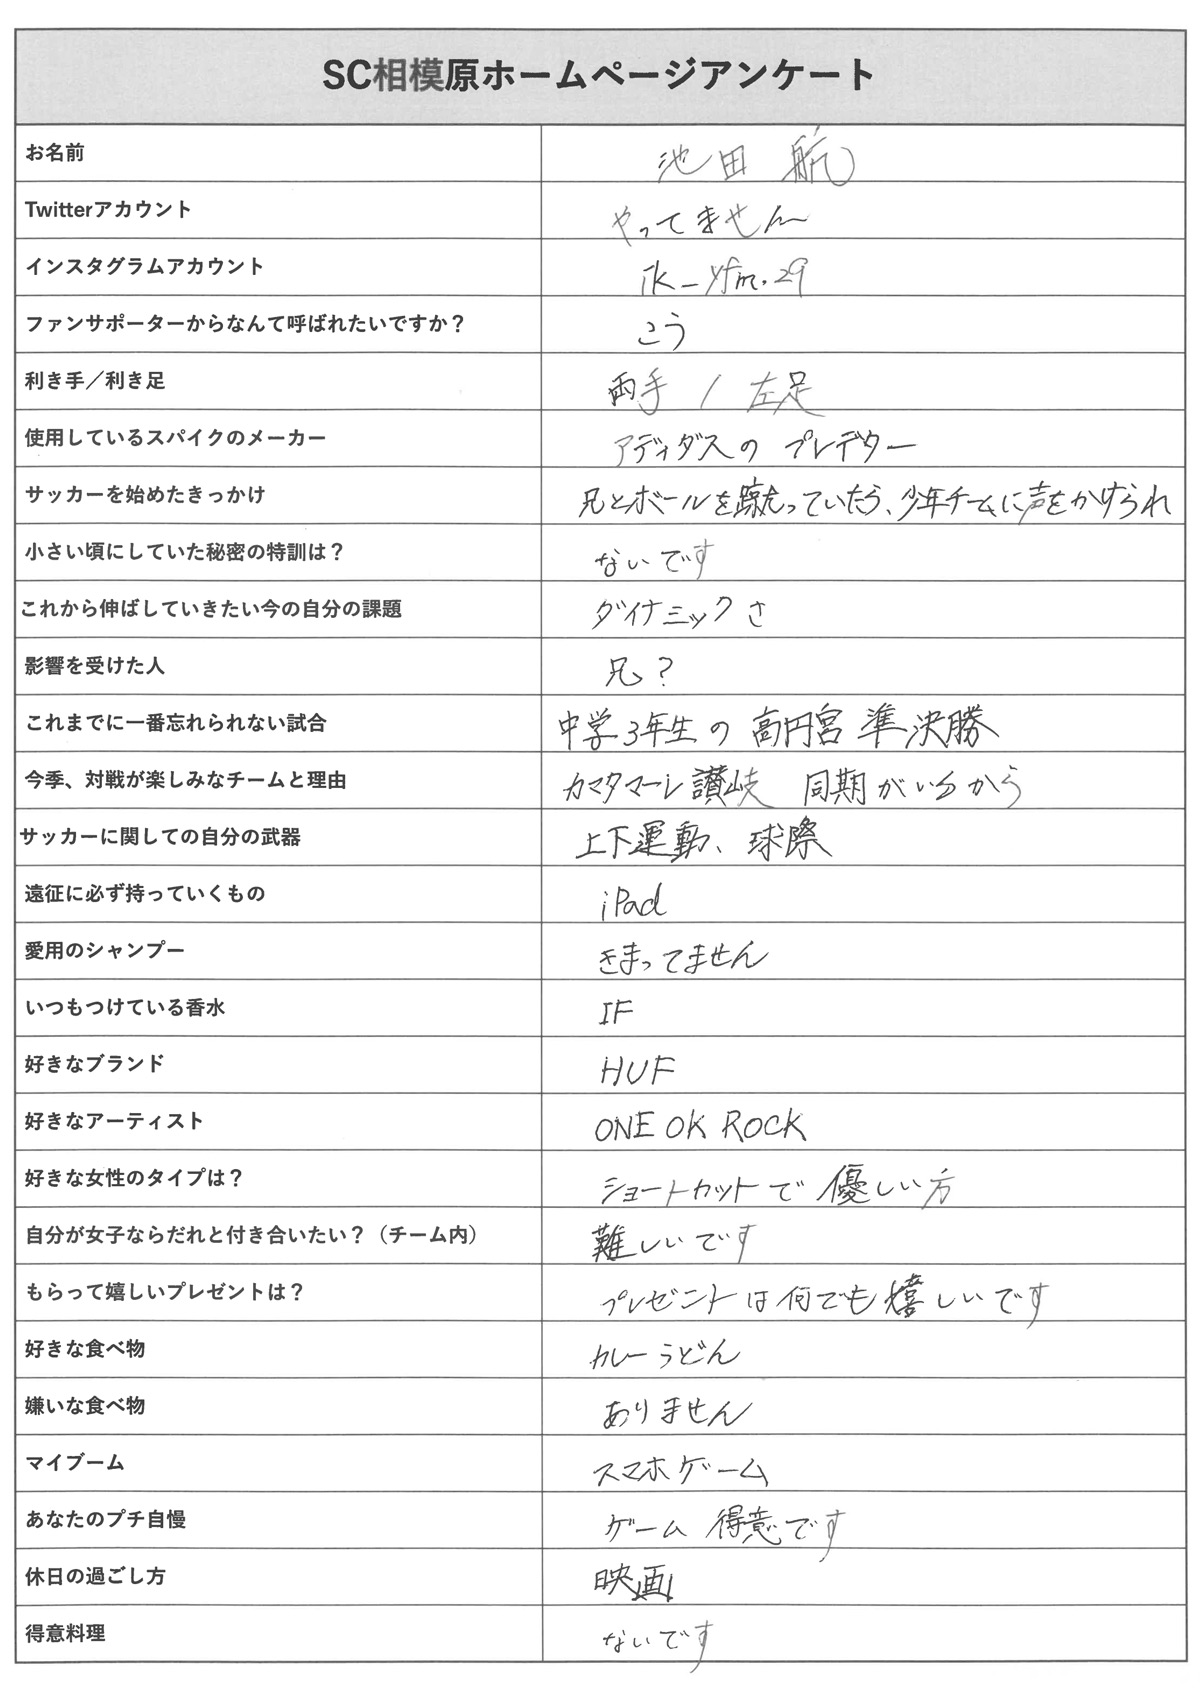 SC相模原ホームページアンケート
お名前 池田 航
Twitterアカウント やってません
インスタグラムアカウント ik_yfm.29
ファンサポーターからなんて呼ばれたいですか？ こう
利き手／利き足 両手 / 左足
使用しているスパイクのメーカー アディダスの プレデター
サッカーを始めたきっかけ 兄とボールを蹴っていたら、少年チームに声をかけられ
小さい頃にしていた秘密の特訓は？ ないです
これから伸ばしていきたい今の自分の課題 ダイナミックさ
影響を受けた人 兄？
これまでに一番忘れられない試合 中学3年生の 高円宮 準決勝
今季、対戦が楽しみなチームと理由 カマタマーレ讃岐 同期がいるから
サッカーに関しての自分の武器 上下運動、球際
遠征に必ず持っていくもの iPad
愛用のシャンプー きまってません
いつもつけている香水 IF
好きなブランド HUF
好きなアーティスト ONE OK ROCK
好きな女性のタイプは？ ショートカットで 優しい方
自分が女子ならだれと付き合いたい？（チーム内） 難しいです
もらって嬉しいプレゼントは？ プレゼントは何でも嬉しいです
好きな食べ物 カレーうどん
嫌いな食べ物 ありません
マイブーム スマホゲーム
あなたのプチ自慢 ゲーム 得意です
休日の過ごし方 映画
得意料理 ないです